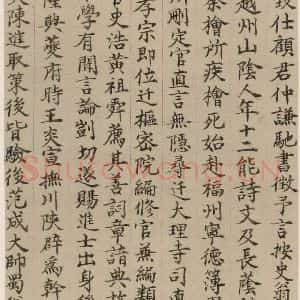 致仕顧君仲謙馳書徵予言按史翁
越州山陰人年十二能詩文及長蔭
秦檜所疾檜死始赴福州寧德簿
刪定官直言無隱尋遷大理寺司直
孝宗即位遷樞密院編修官兼編類
史浩黄祖舜薦其善詞章諳典故
學有聞言論剴切遂賜進士出身後
隆興夔府時王炎宣撫川陝辟為幹
陳進取第後皆驗後范成大帥蜀